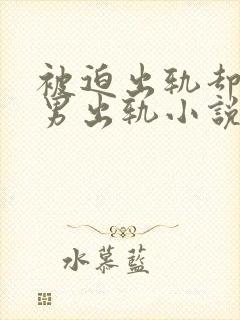 被迫出轨却
男出轨小說
水慕藍